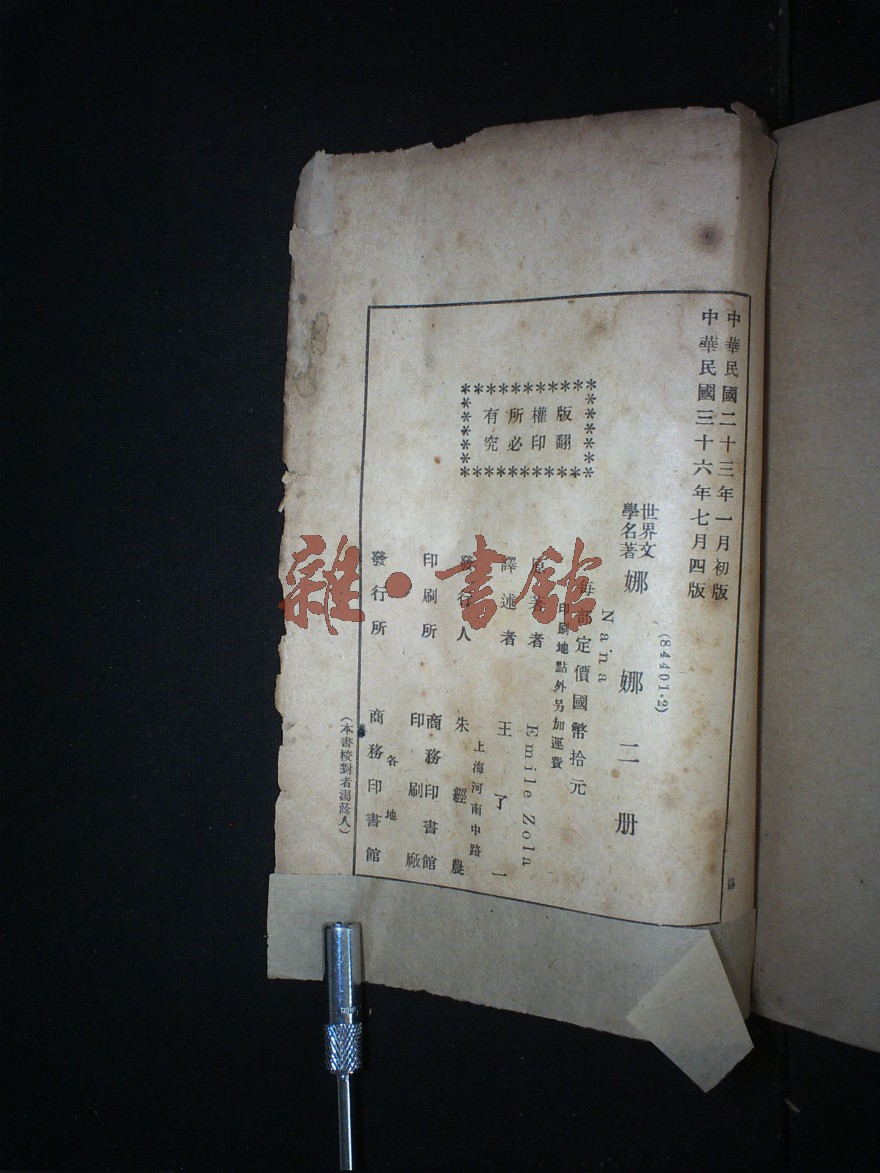 中華民國二十三年一月初版
中華民國三十六年七月四版
(84401·2)
世界文學名著 娜娜二册
Nana
每部定價國幣拾元
印刷地點外另加運費
版權所有
翻印必究
原著者 Emile Zola
譯述者 王了一
發行人 朱經農
上海河南中路
印刷所 商務印書館印刷廠
發行所 各地商務印書館
(本書校對者湯蔭人)
雜·書館